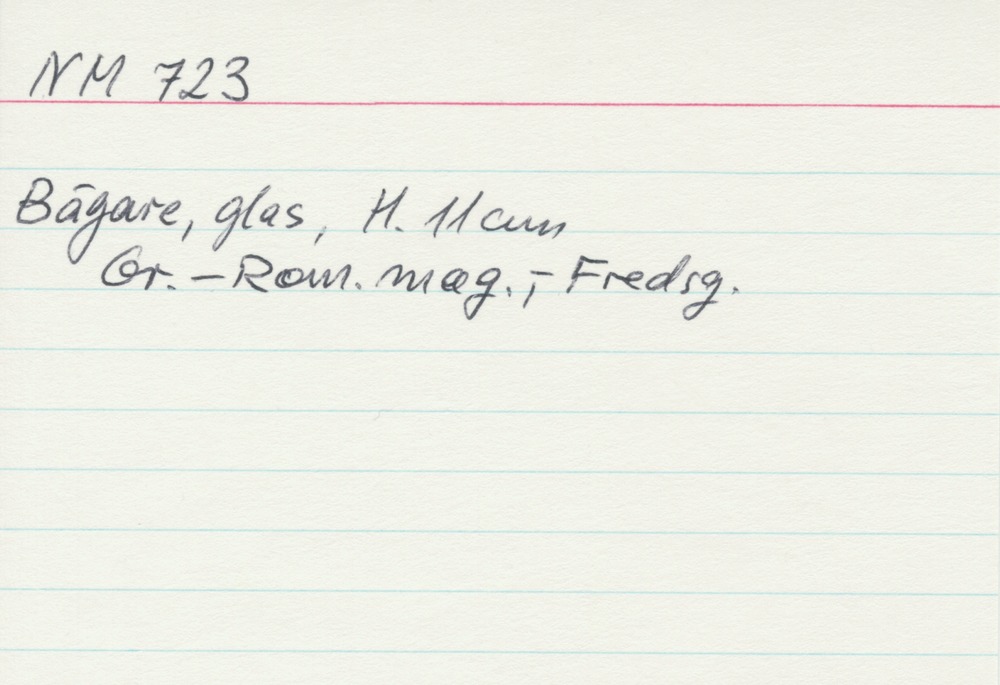 NM 723
Bägare, glas, H. 11 cm
Gr.-Rom. mag.,- Fredsg.